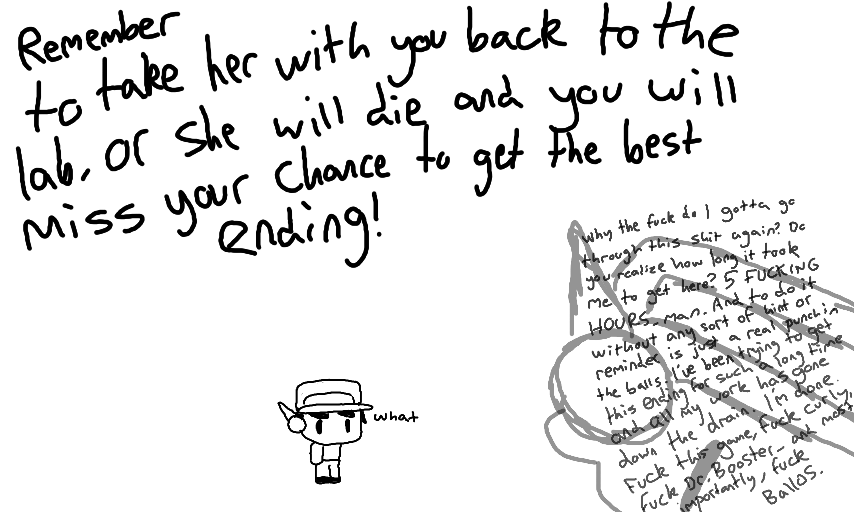 Remember
to take her with you back to the
lab, or she will die and you will
miss your chance to get the best
ending!
what
why the fuck do I gotta go
through this shit again? Do
you realize how long it took
me to get here? 5 FUCKING
HOURS, man. And to do it
without any sort of hint or
reminder is just a real punch in
the balls. I've been trying to get
this ending for such a long time
and all my work has gone
down the drain. I'm done.
Fuck this game, fuck curly,
fuck Dr. Booster- and most
importantly, fuck
Ballos.